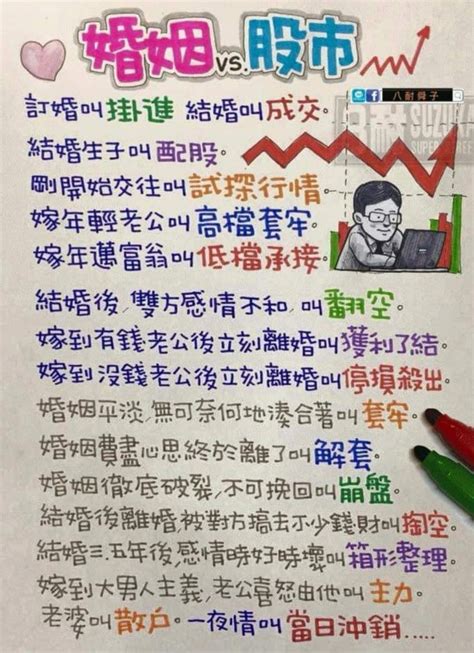 婚姻 vs. 股市
八耐舜子
訂婚叫掛進 結婚叫成交。
結婚生子叫配股。
剛開始交往叫試探行情。
嫁年輕老公叫高檔套牢。
嫁年邁富翁叫低檔承接。
結婚後,雙方感情不和,叫翻空。
嫁到有錢老公後立刻離婚叫獲利了結。
嫁到沒錢老公後立刻離婚叫停損殺出。
婚姻平淡,無可奈何地湊合著叫套牢。
婚姻費盡心思終於離了叫解套。
婚姻徹底破裂,不可挽回叫崩盤。
結婚後離婚,被對方搞去不少錢財叫掏空。
結婚三.五年後,感情時好時壞叫箱形整理。
嫁到大男人主義,老公喜怒由他叫主力。
老婆叫散户。一夜情叫當日沖銷.....